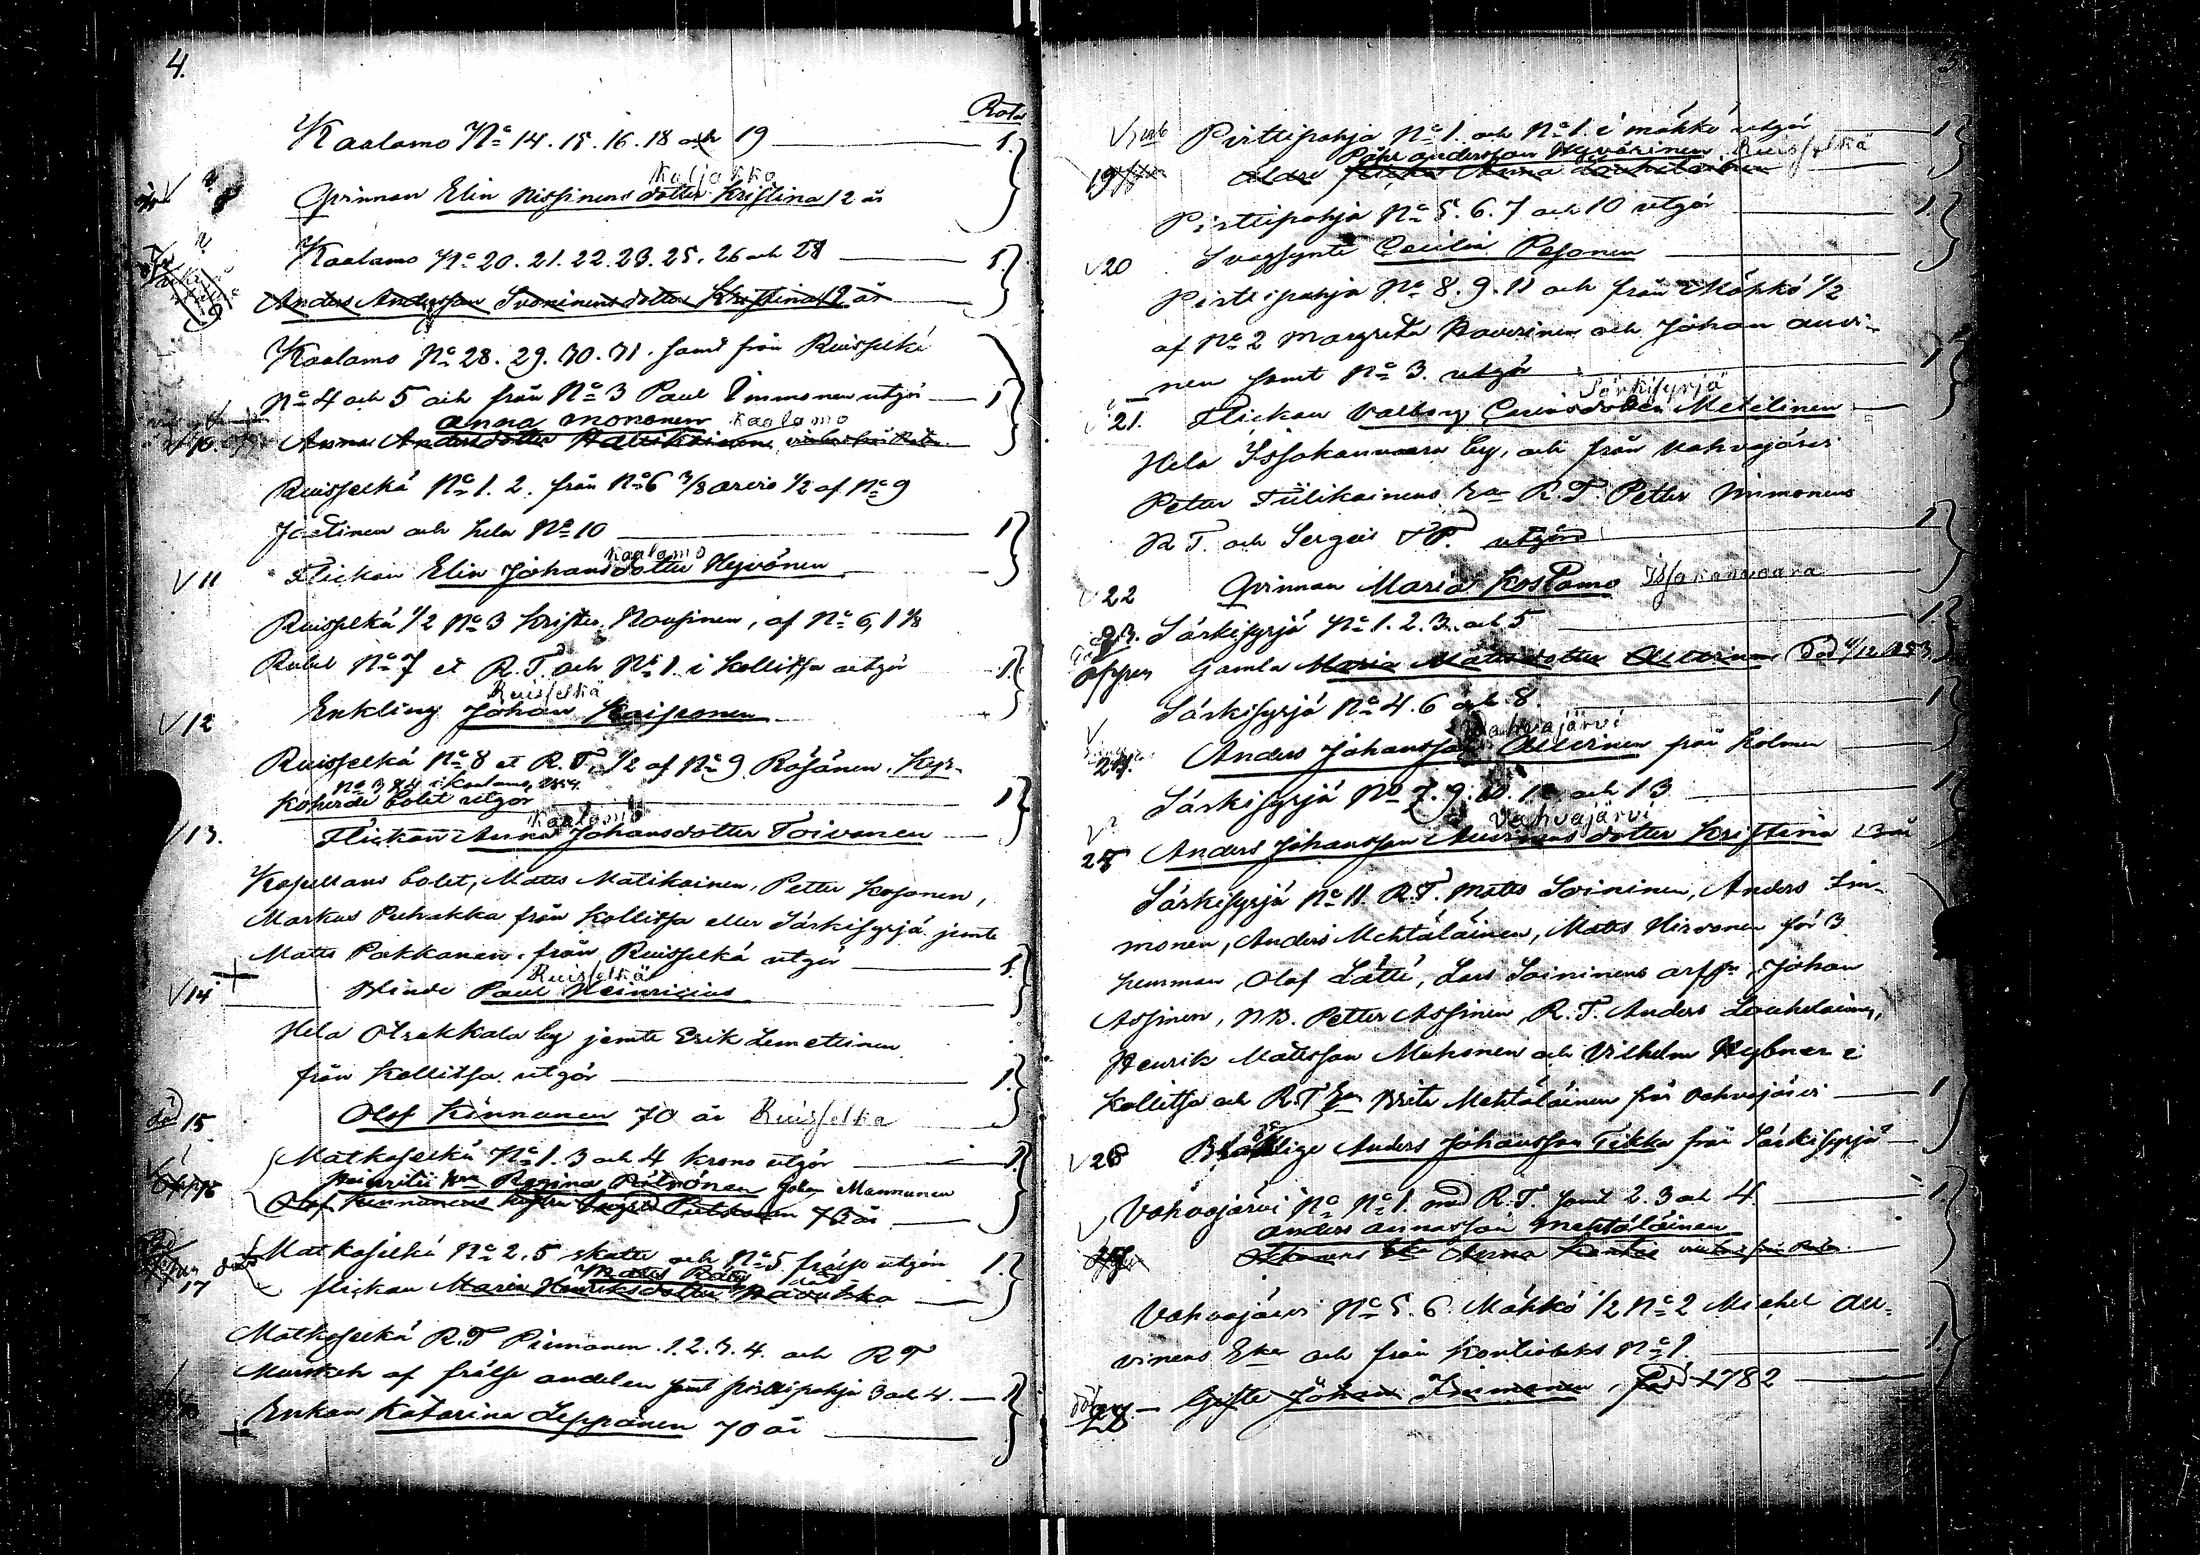 4.
Rota
Kaalamo No 14. 15. 16. 18 och 19 1.
Kaljakka
Qvinnan Elin Nissinens dotter Kristina 12 år
Kaalamo No 20. 21. 22. 23. 25. 26 och 27 1.
Anders Andersson Svoninens dotter Kristina 12 år
Kaalamo No 28. 29. 30. 31. samt från Ruisselkä
No 4 och 5 och från No 3 Paul Immonen utgör 1
Anna Mononen Kaalamo
10. Anna Andersdotter
Ruisselkä No 1. 2. från No 6 3/8 arvio 1/2 af No 9
Jaatinen och hela No 10 1
Kaalamo
V 11 Flickan Elin Johansdotter Hyvönen
Ruisselkä 1/2 No 3 Krister Nousinen, af No 6, 1 1/8
Rubel No 7 et R. T. och No 1 i Kollitsa utgör 1.
Ruisselkä
V 12 Enkling Johan Kaipponen
Ruisselkä No 8 et R. T. 1/2 af No 9 Räsänen. Kyr-
No 3 & 4 i Kaalamo, 1854
koherde bolet utgör 1
Kaalamo
V 13. Flickan Anna Johansdotter Toivanen
Kapellans bolet, Matts Matikainen, Petter Kosonen,
Markus Puhakka från Kollitsa eller Särkisyrjä jemte
Matts Pakkanen från Ruisselkä utgör 1.
Ruisselkä
V 14 Blinde Paul Heinricius
Hela Otrakkala by jemte Erik Lemettinen
från Kollitsa utgör 1.
död 15. Olof Kinnunen 70 år Ruisselkä
Matkaselkä No 1. 3 och 4 krono utgör 1.
Heinritii Regina Pitkönen Johan Mannunen
Olof Kinnunens hustru Ingrid 73 år
Matkaselkä No 2. 5 skatte och No 5 frälse utgör 1.
Matts Räty
17 flickan Maria Henriksdotter
Matkaselkä R. T Pirmanen 1. 2. 3. 4. och R T
Murskek af frälse andelen samt Pirttipohja 3 och 4. 1
Enkan Katarina Leppänen 70 år
5
Pirttipohja No 1. och No 1. i Mäkkö utgör 1
Påhl Andersson Hyvärinen Ruisselkä
19
Pirttipohja No 5. 6. 7 och 10 utgör 1.
V 20 Svagsynte Cecilia Pesonen
Pirttipohja No 8. 9. 11 och från Mäkkö 1/2
af No 2 Margreta Hoverinen och Johan Auvi-
nen samt No 3. utgör 1
Särkisyrjä
V 21. Flickan Valborg Metilinen
Hela Issakanvaara by, och från Vahvajärvi
Petter Tiilikainens R. T. Petter Immonens
R T. och Sergeis utgör 1
V 22 Qvinnan Maria Kostamo Issakanvaara
23. Särkisyrjä No 1. 2. 3. och 5 1.
Gamla Maria Mattsdotter Auvinen Död 4/12 1853
Särkisyrjä No 4. 6 och 8. 1
Vahvajärvi
24. Anders Johansson Auvinen från Holmen
Särkisyrjä No 7. 9. 10. 12. och 13 1
Vahvajärvi
25 Anders Johansson Auvinens dotter Kristina 13 år
Särkisyrjä No 11. R. T. Matts Soininen, Anders Im-
monen, Anders Mehtäläinen, Matts Hirvonen för 3
hemman, Olof Lätti, Lars Soininens arff. Johan
Assinen, NB. Petter Assinen R. T. Anders Louhelainen,
Henrik Matsson Makonen och Vilhelm Hybner i
Kollitsa och R. T. Brita Mehtäläinen från Vahvajärvi 1
V 26 Anders Johansson Tikka från Särkisyrjä
Vahvajärvi No No 1. med R. T. samt 2. 3 och 4. 1
Anders Annasson Mehtäläinen
Anna
Vahvajärvi No 5. 6. Mäkkö 1/2 No 2 Michel Au-
vinens Eka och från Kontiolaks No 1. 1.
28 Gifte Johan Immonen, född 1782